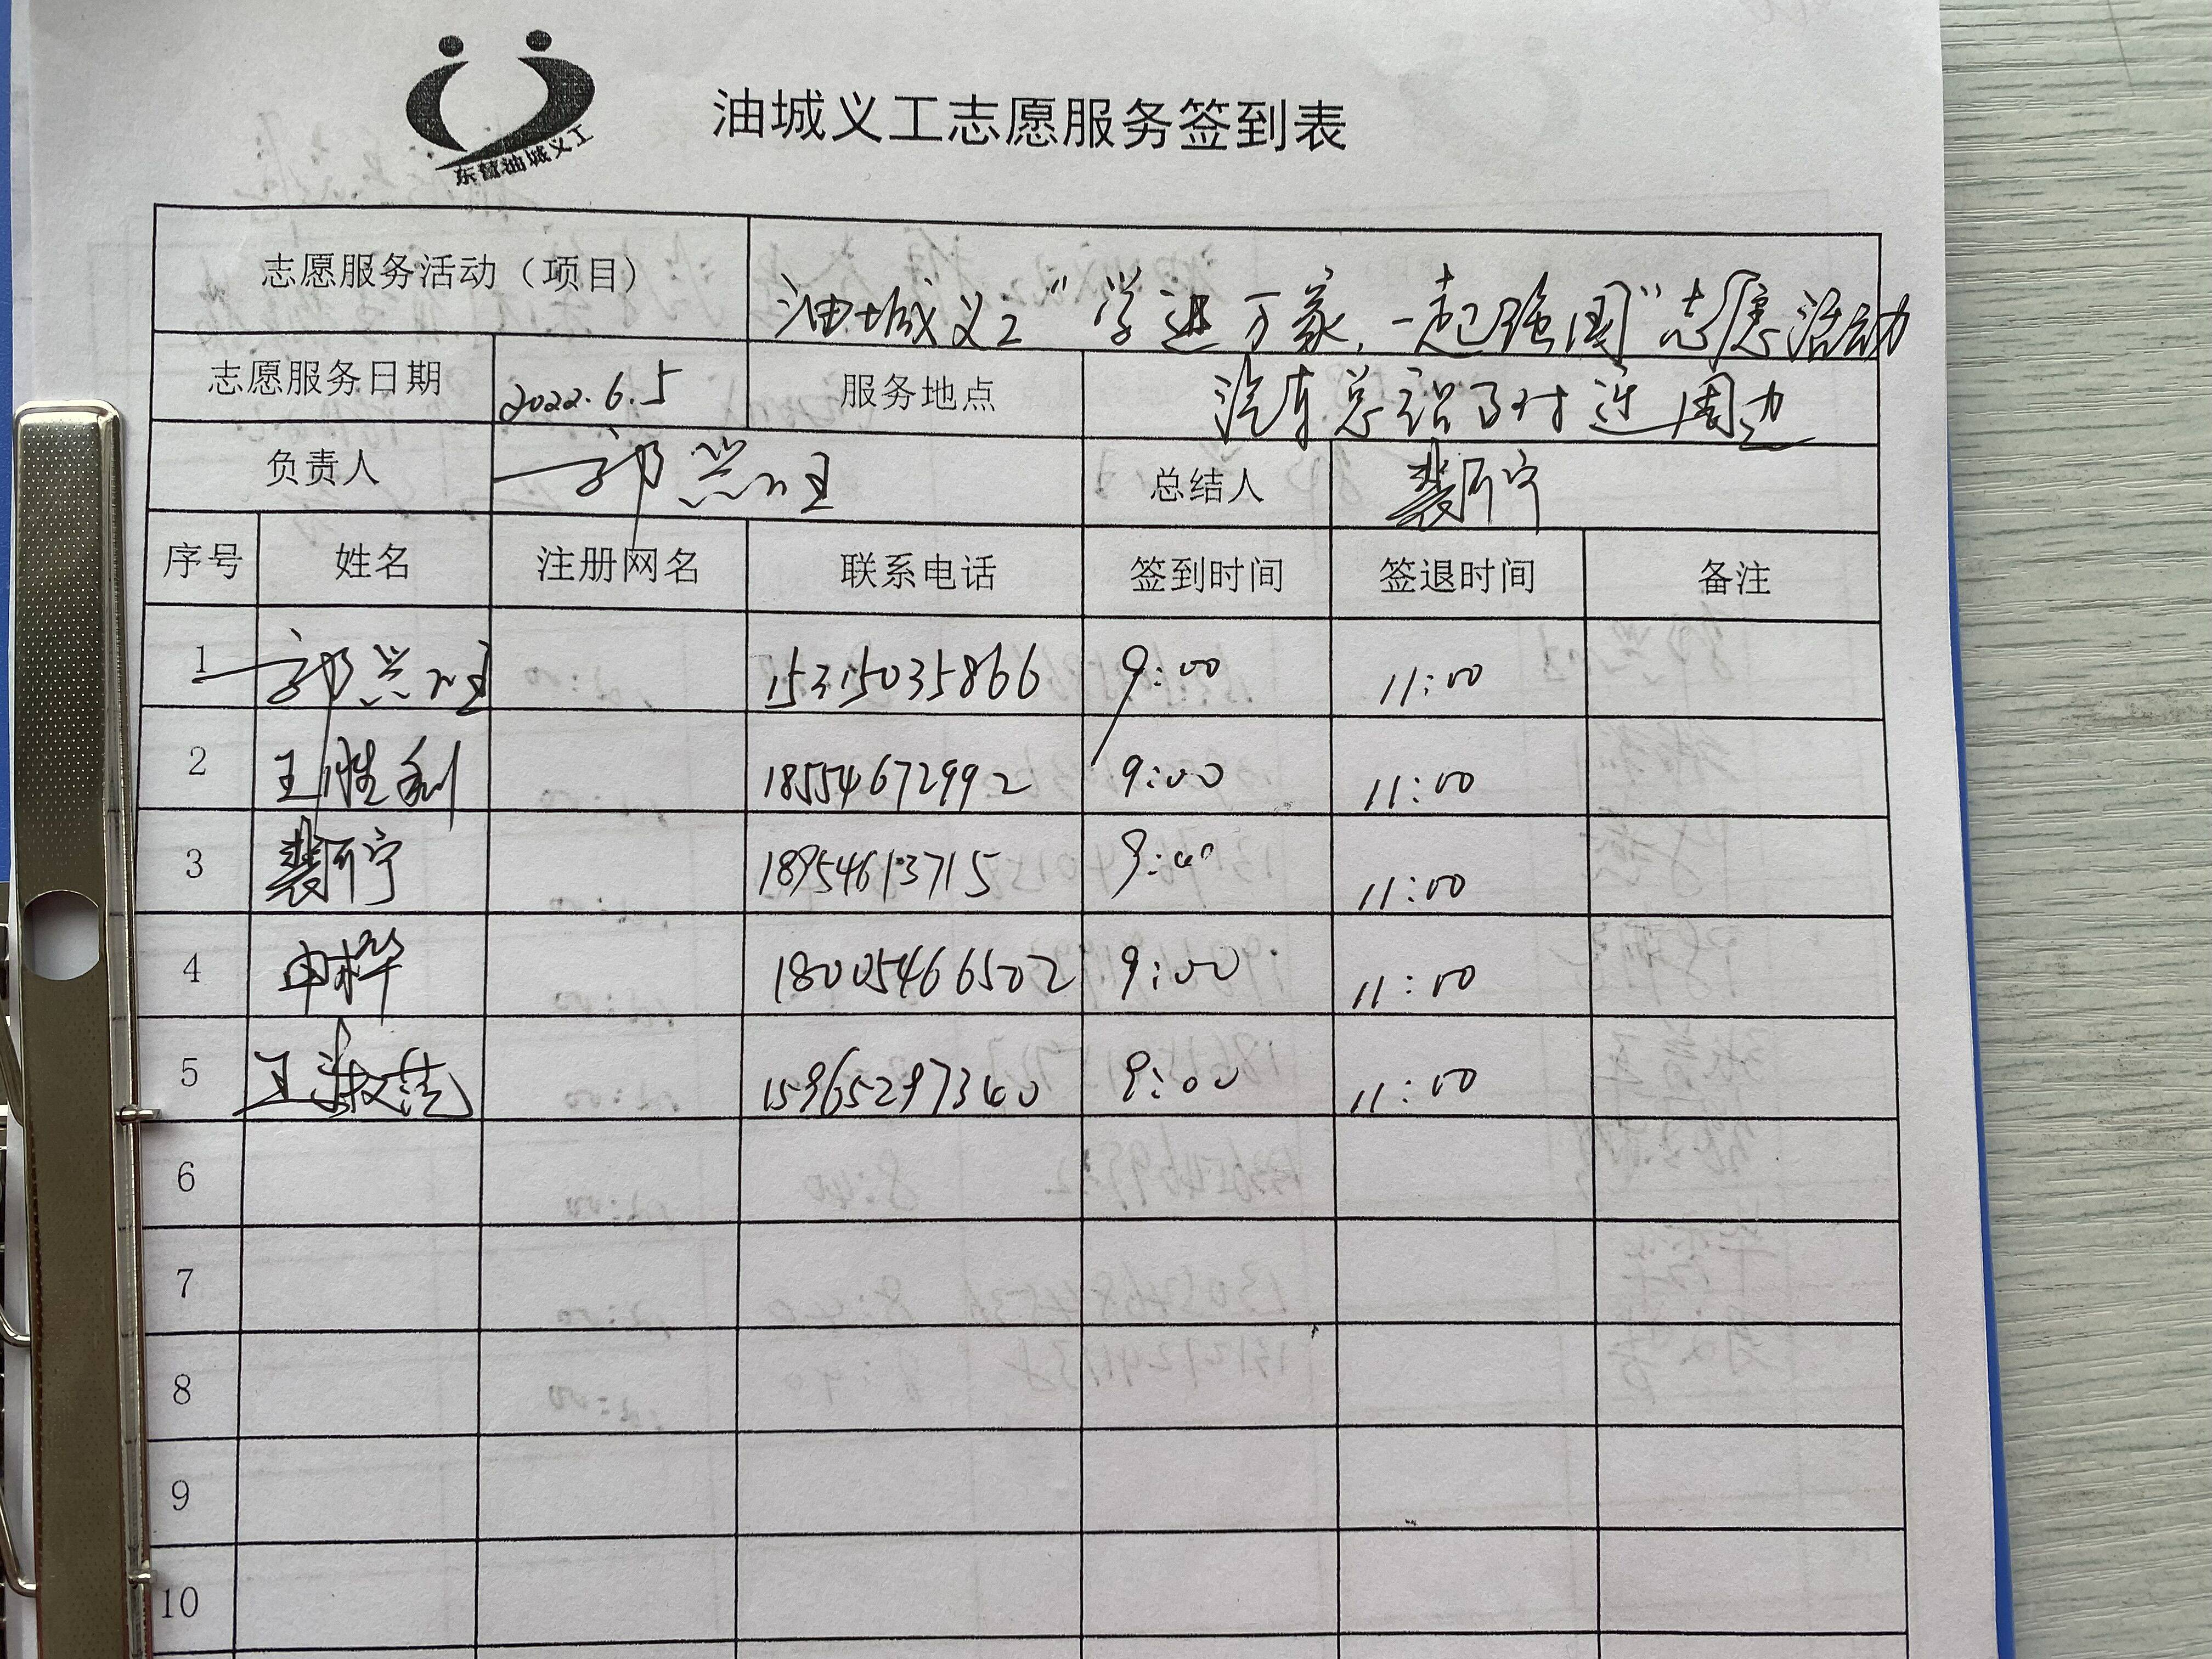 东营油城义工
油城义工志愿服务签到表
志愿服务活动（项目） 油城义工“学进万家，一起强国”志愿活动
志愿服务日期 2022.6.5 服务地点 汽车总站附近周边
负责人 郭兴旺 总结人 裴乐宁
序号 姓名 注册网名 联系电话 签到时间 签退时间 备注
1 郭兴旺 15315035866 9:00 11:00
2 王胜利 18554672992 9:00 11:00
3 18954613715 9:00 11:00
4 申桦 18005466502 9:00 11:00
5 王淑范 15965297340 9:00 11:00
6
7
8
9
10